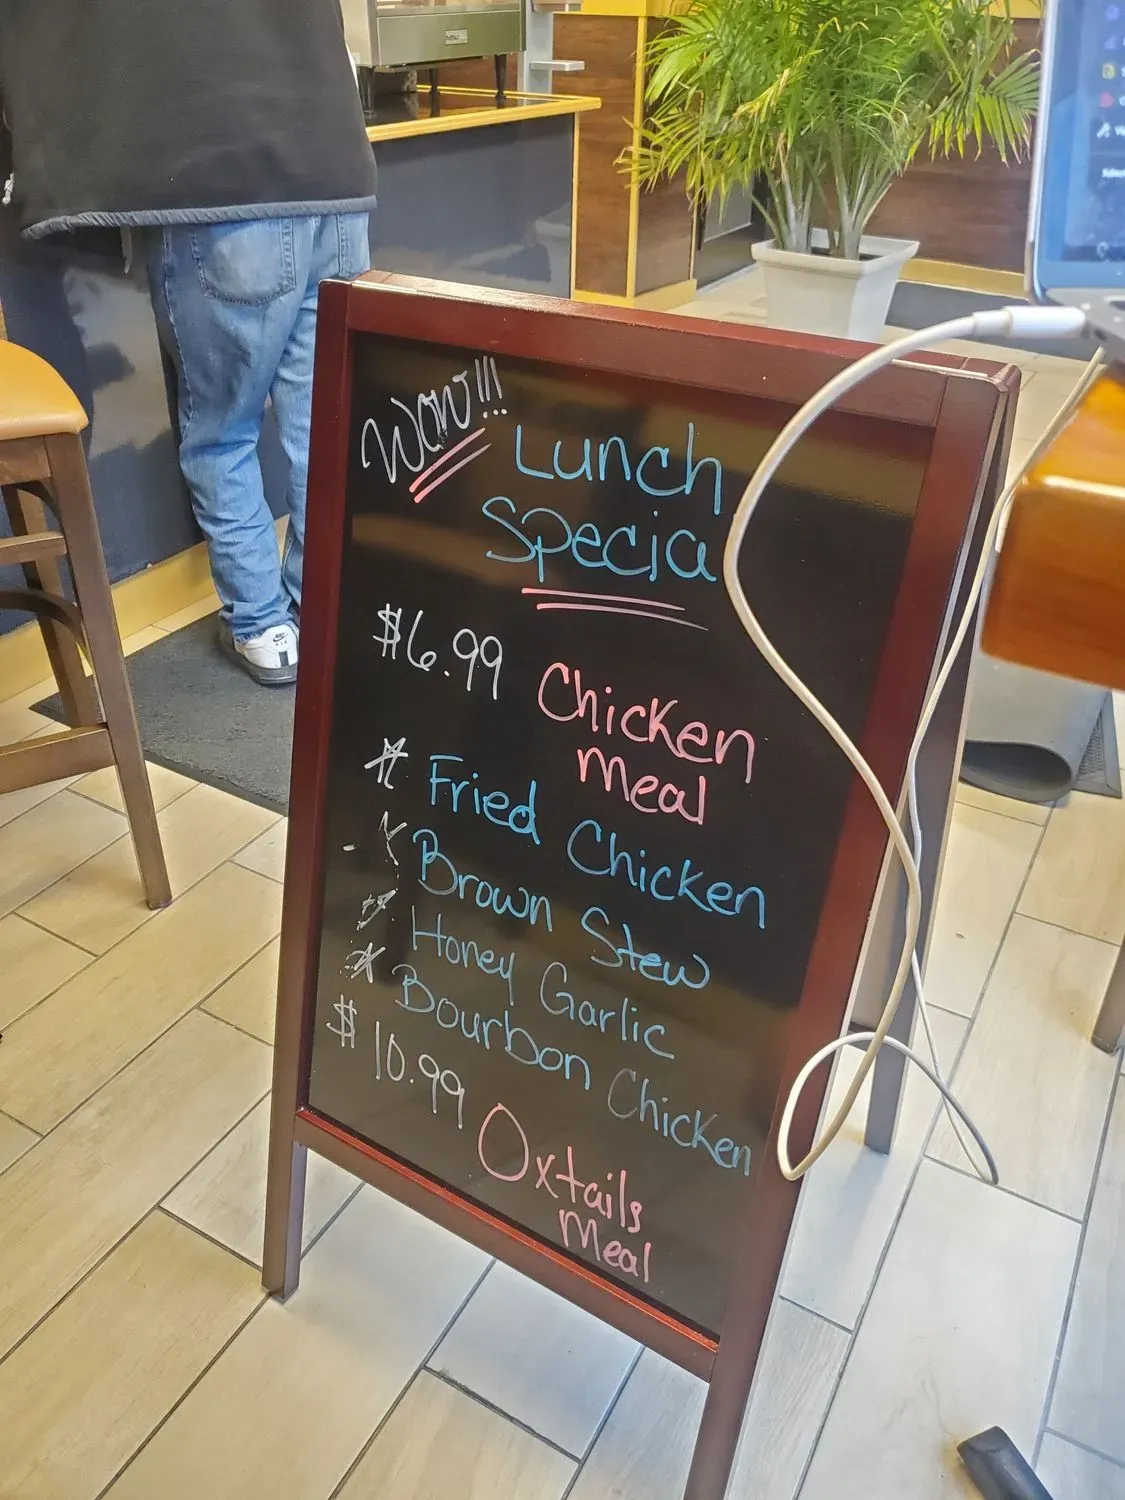 Wow!!!
Lunch
Specia
$6.99 Chicken
Meal
Fried Chicken
Brown Stew
Honey Garlic
Bourbon Chicken
$10.99 Oxtails
Meal